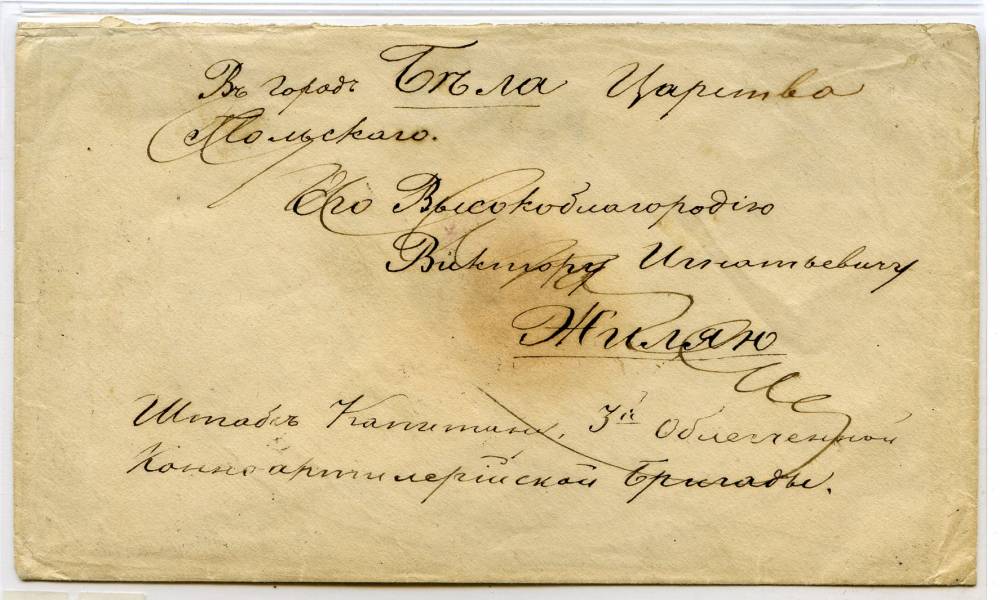 Въ городъ Бѣла Царства
Польскаго.
Его Высокоблагородію
Виктору Игнатьевичу
Жиляю
Штабсъ Капитану, 3й Облегченной
Конноартилерійской Бригады.